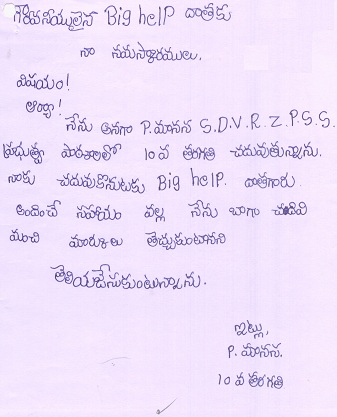 గౌరవనీయులైన Big help దాతకు
నా నమస్కారములు.
విషయం!
ఆర్యా!
నేను అనగా P.మానస S.D.V.R.Z.P.S.S.
ప్రభుత్వ పాఠశాలలో 10 వ తరగతి చదువుతున్నాను.
నాకు చదువుకొనుటకు Big help. దాతగారు
అందించే సహాయం వల్ల నేను బాగా చదివి
మంచి మార్కులు తెచ్చుకుంటానని
తెలియజేసుకుంటున్నాను.
ఇట్లు,
P. మానస.
10 వ తరగతి